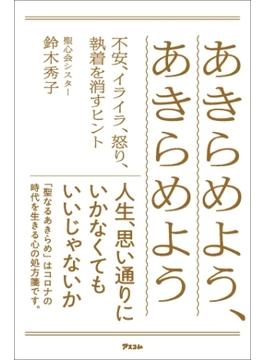 あきらめよう、
あきらめよう
不安、イライラ、怒り、
執着を消すヒント
聖心会シスター
鈴木秀子
人生、思い通りに
いかなくても
いいじゃないか
「聖なるあきらめ」はコロナの
時代を生きる心の処方箋です。
アスコム